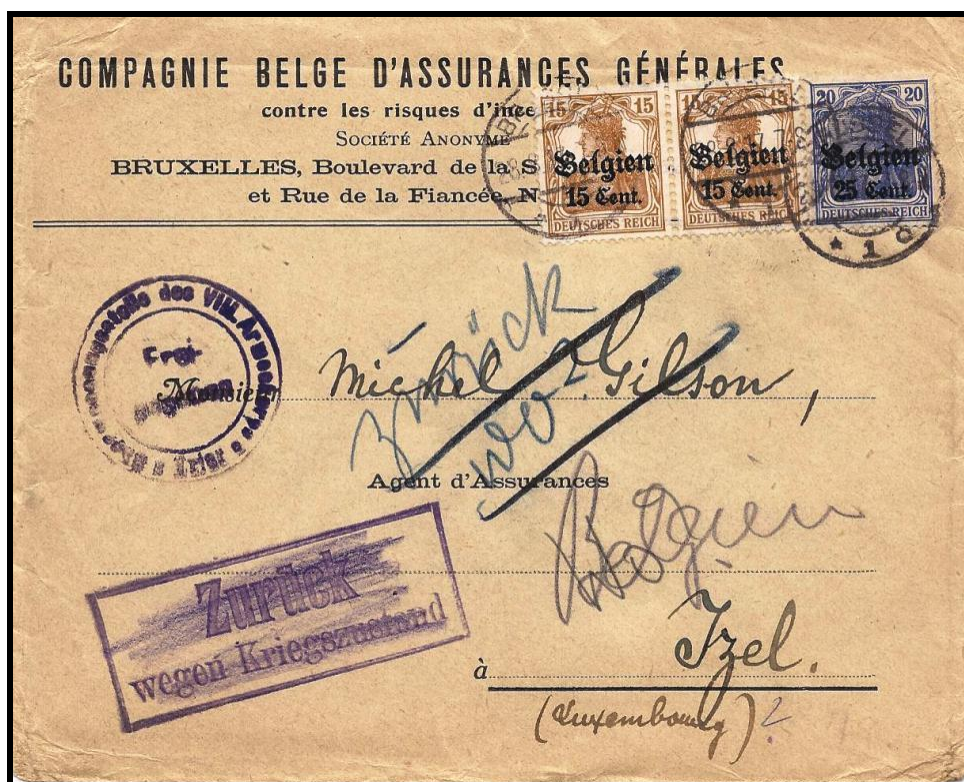 COMPAGNIE BELGE D'ASSURANCES GÉNÉRALES
contre les risques d'ince
SOCIÉTÉ ANONYME
BRUXELLES, Boulevard de la S
et Rue de la Fiancée, N
15 15
Belgien
15 Cent.
DEUTSCHES REICH
15 15
Belgien
15 Cent.
DEUTSCHES REICH
20 20
Belgien
25 Cent.
DEUTSCHES REICH
* 1 d
des VIII. Armeekorps * Trier *
Frei
Zurück
Monsieur Michel Gilson,
Agent d'Assurances
Belgien
Zurück
wegen Kriegszustand
à Izel.
(Luxembourg) ?